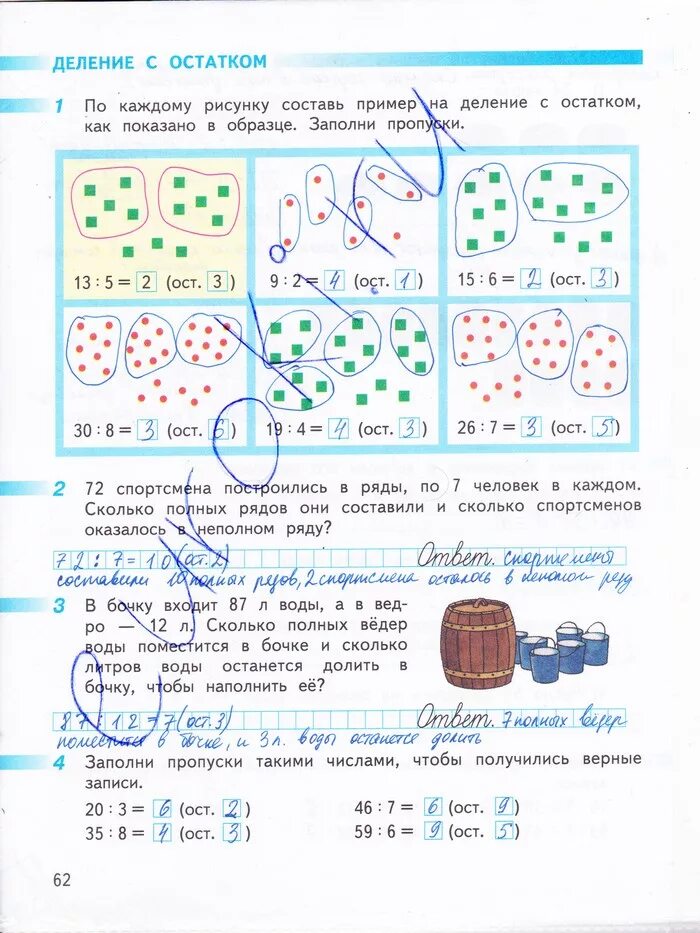 ДЕЛЕНИЕ С ОСТАТКОМ
1 По каждому рисунку составь пример на деление с остатком,
как показано в образце. Заполни пропуски.
13 : 5 = 2 (ост. 3) 9 : 2 = 4 (ост. 1) 15 : 6 = 2 (ост. 3)
30 : 8 = 3 (ост. 6) 19 : 4 = 4 (ост. 3) 26 : 7 = 3 (ост. 5)
2 72 спортсмена построились в ряды, по 7 человек в каждом.
Сколько полных рядов они составили и сколько спортсменов
оказалось в неполном ряду?
72 : 7 = 10 (ост. 2) Ответ. спортсмены
составили 10 полных рядов, 2 спортсмена осталось в неполном ряду
3 В бочку входит 87 л воды, а в вед-
ро — 12 л. Сколько полных вёдер
воды поместится в бочке и сколько
литров воды останется долить в
бочку, чтобы наполнить её?
87 : 12 = 7 (ост. 3) Ответ. 7 полных вёдер
поместится в бочке, и 3 л. воды останется долить
4 Заполни пропуски такими числами, чтобы получились верные
записи.
20 : 3 = 6 (ост. 2) 46 : 7 = 6 (ост. 9)
35 : 8 = 4 (ост. 3) 59 : 6 = 9 (ост. 5)
62